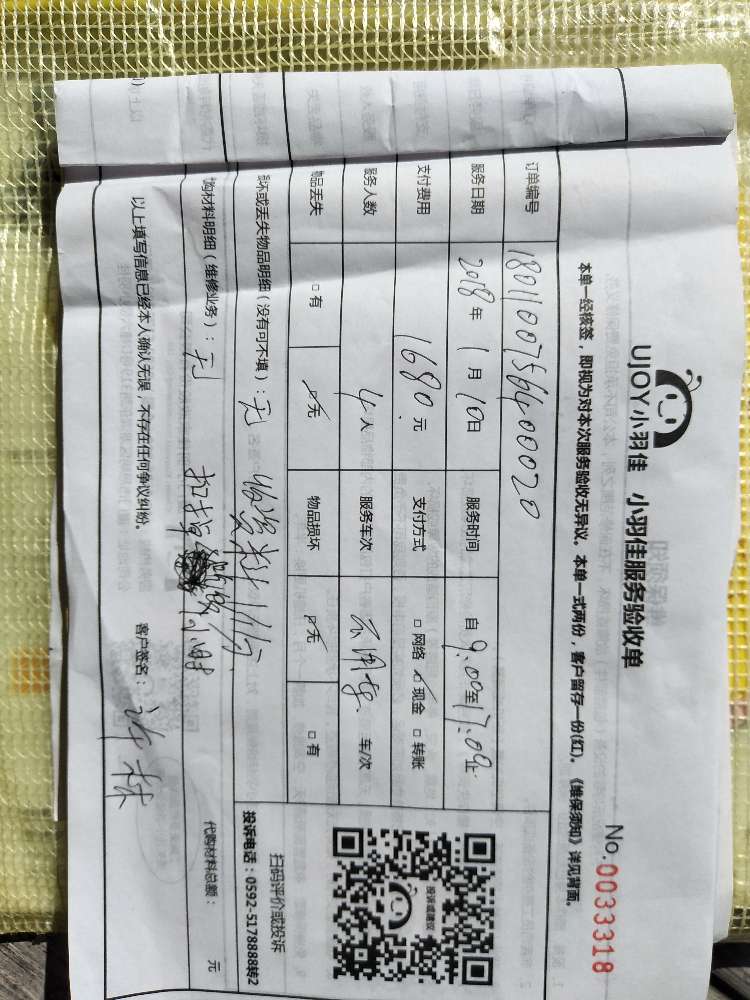 UJOY小羽佳 小羽佳服务验收单
No.0033318
本单一经核签，即视为对本次服务验收无异议。本单一式两份，客户留存一份(红)。《维保须知》详见背面。
订单编号 180110075640020
服务日期 2018年1月10日 服务时间 自9:00至17:00止
支付费用 1680元 支付方式 □网络 ☑现金 □转账
服务人数 4人 服务车次 不用车 车/次
物品丢失 □有 ☑无 物品损坏 ☑无 □有
坏或丢失物品明细（没有可不填）：无 收资料111元
购材料明细（维修业务）：无
代购材料总额： 元
以上填写信息已经本人确认无误，不存在任何争议纠纷。
客户签名：
扫码评价或投诉
投诉电话：0592-5178888转2
投诉或建议